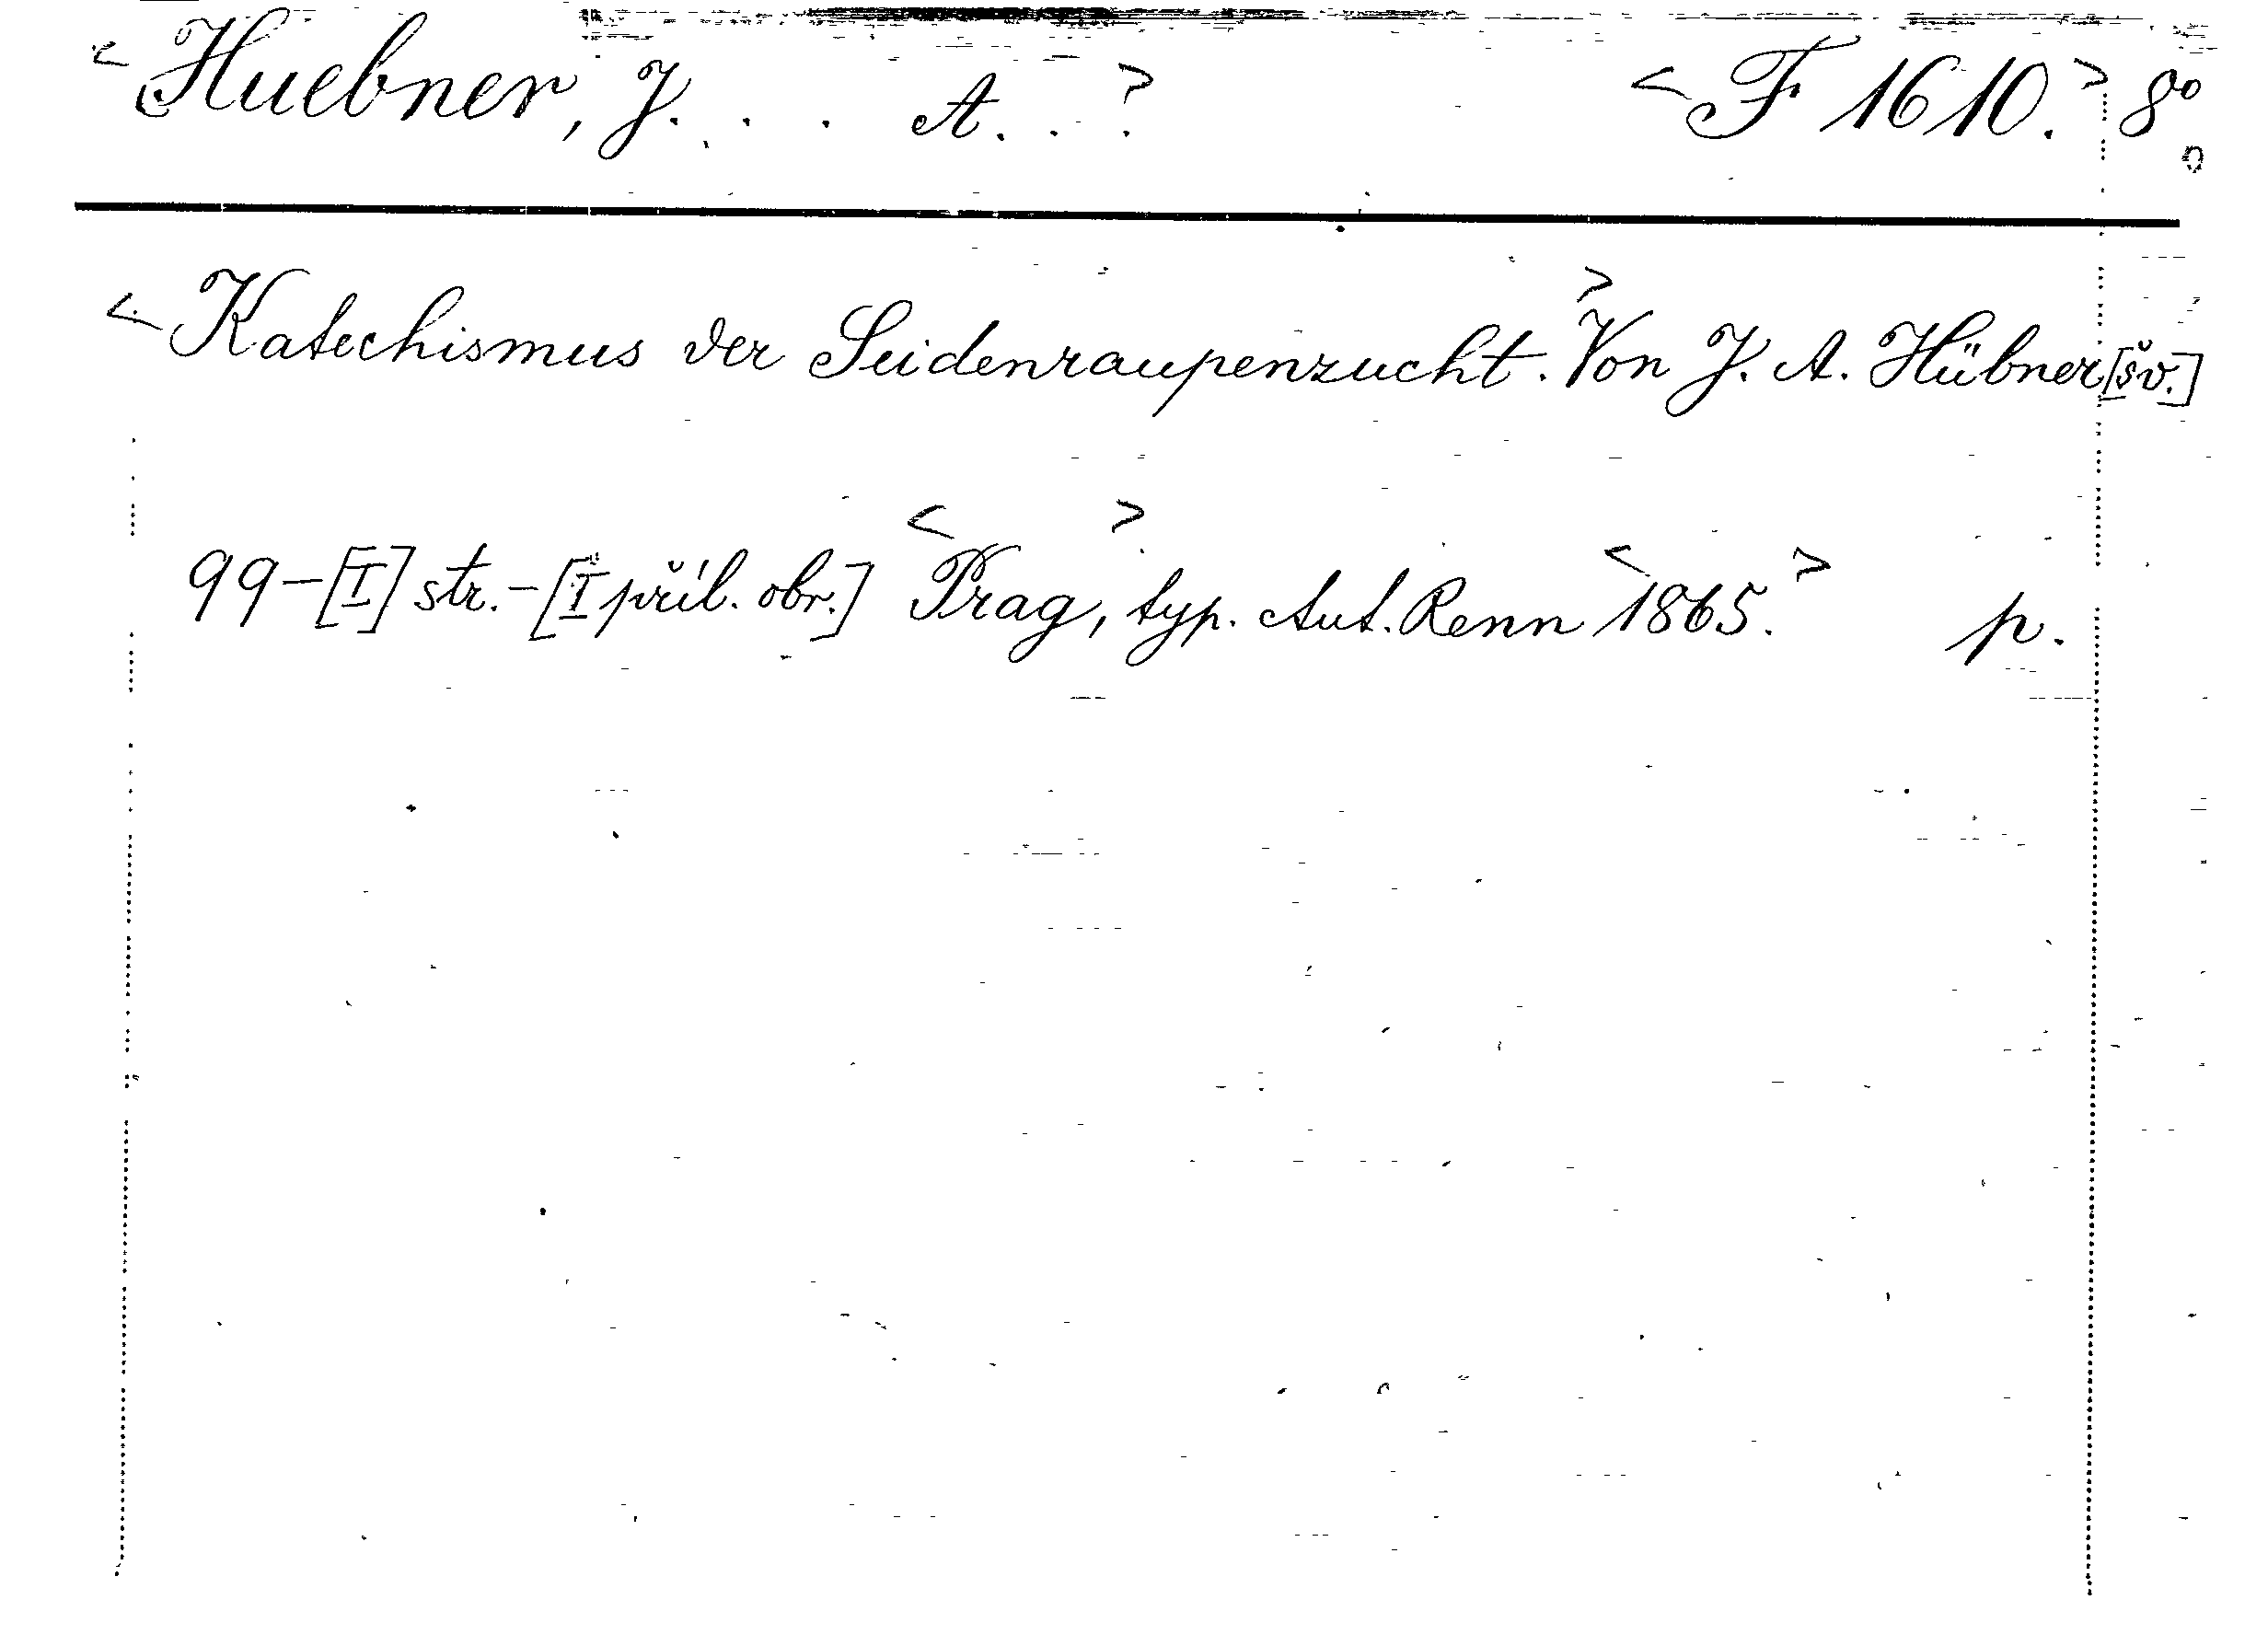 <Huebner, J. . . . A. . .> <F 1610.> 8°
<Katechismus der Seidenraupenzucht.> Von J. A. Hübner [šv.]
99-[I] str.-[I příl. obr.] <Prag>, typ. Ant. Renn <1865.> p.